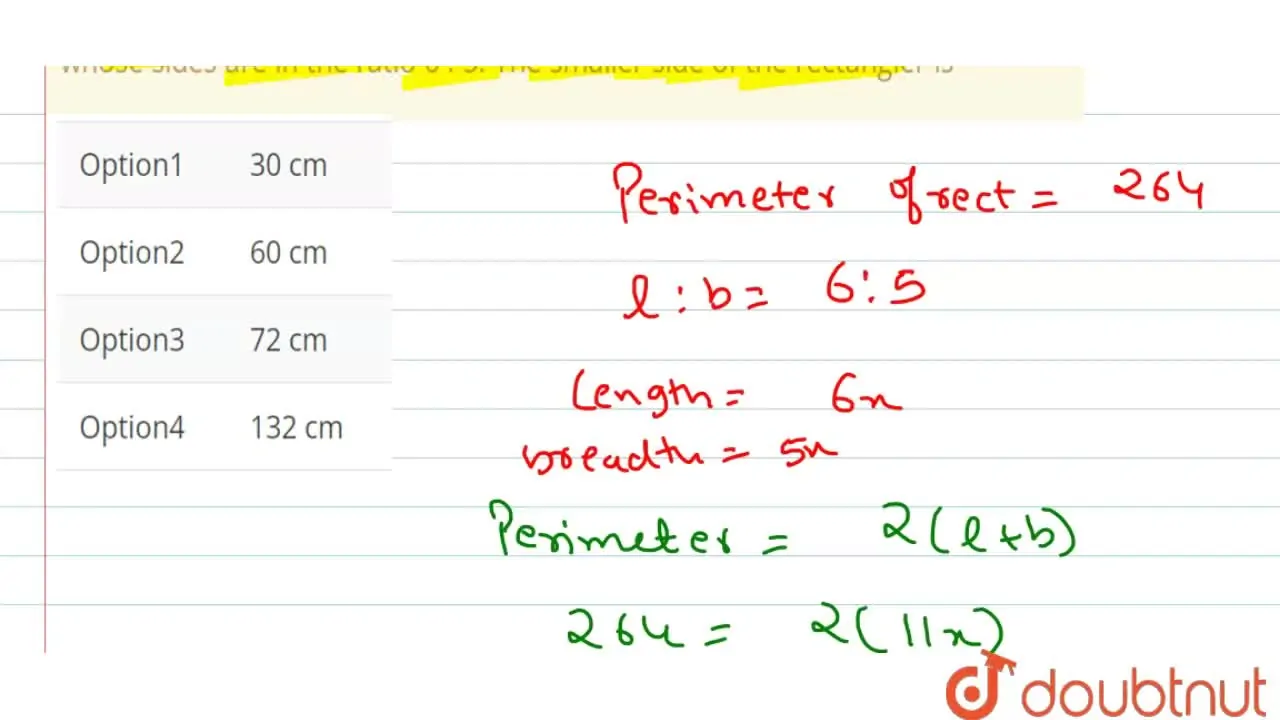 whose sides are in the ratio 6 : 5. The smaller side of the rectangler is
Option1 30 cm
Option2 60 cm
Option3 72 cm
Option4 132 cm
Perimeter of rect = 264
l : b = 6 : 5
Length = 6x
breadth = 5x
Perimeter = 2 (l + b)
264 = 2 (11x)
doubtnut